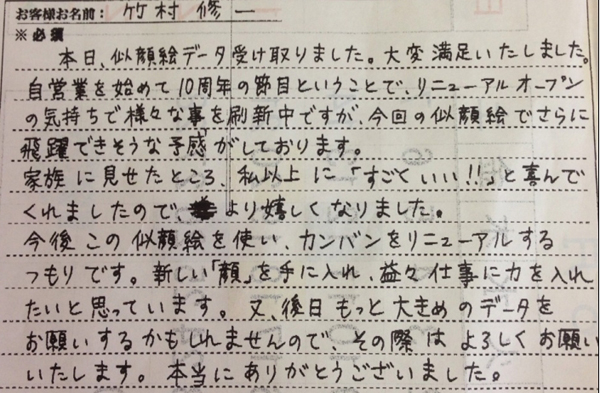 お客様お名前: 竹村 修一
※必須
本日、似顔絵データ受け取りました。大変満足いたしました。
自営業を始めて10周年の節目ということで、リニューアルオープン
の気持ちで様々な事を刷新中ですが、今回の似顔絵でさらに
飛躍できそうな予感がしております。
家族に見せたところ、私以上に「すごくいい!!」と喜んで
くれましたのでより嬉しくなりました。
今後この似顔絵を使い、カンバンをリニューアルする
つもりです。新しい「顔」を手に入れ、益々仕事に力を入れ
たいと思っています。又、後日もっと大きめのデータを
お願いするかもしれませんので、その際はよろしくお願い
いたします。本当にありがとうございました。